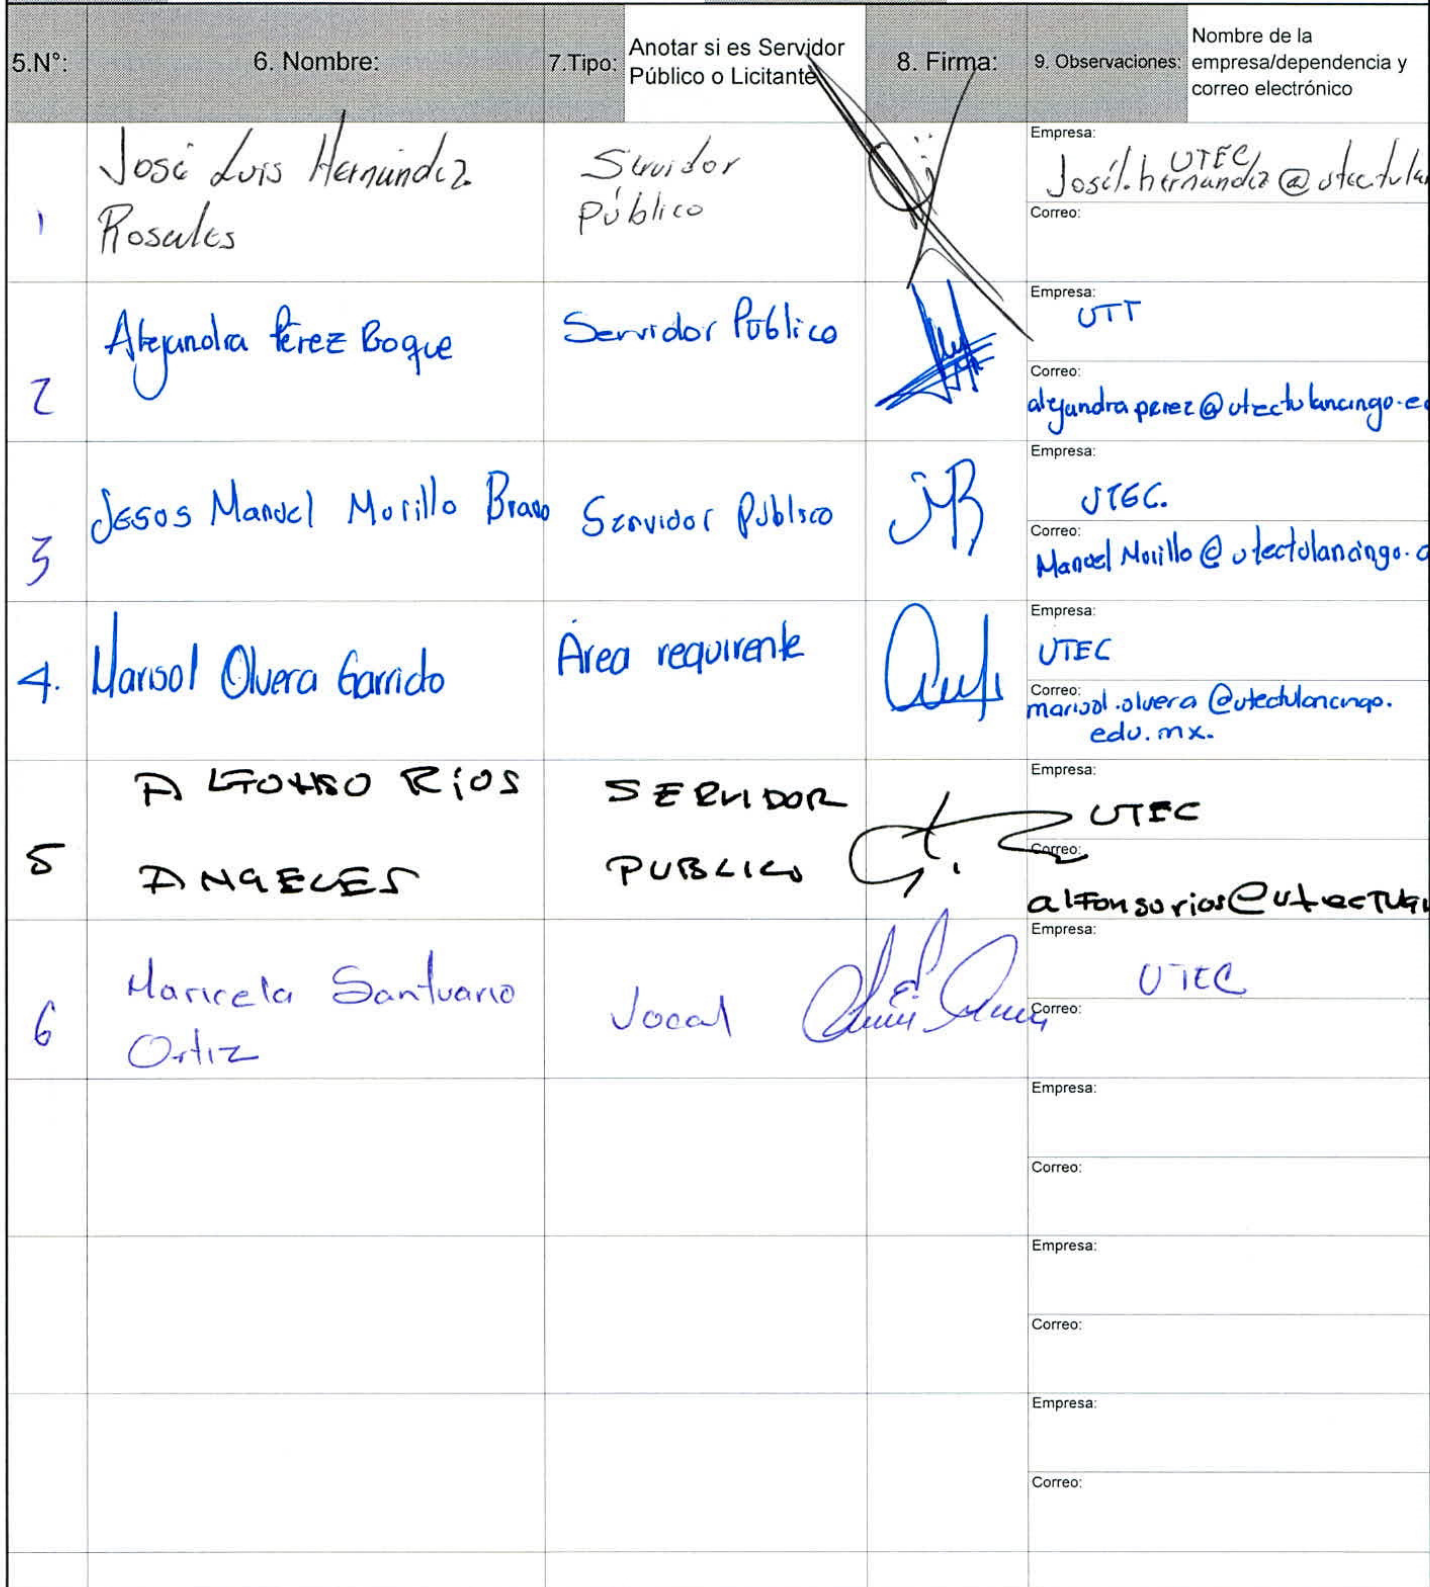 5.N°:
6. Nombre:
7.Tipo:
Anotar si es Servidor
Público o Licitante
8. Firma:
9. Observaciones:
Nombre de la
empresa/dependencia y
correo electrónico
1
José Luis Hernández
Rosales
Servidor
Público
Empresa:
UTEC
Josél.hernandez@utectulan
Correo:
2
Alejandra Pérez Boque
Servidor Público
Empresa:
UTT
Correo:
alejandraperez@utectulancingo.ed
3
Jesos Manuel Morillo Bravo
Servidor Publico
Empresa:
UTEC.
Correo:
Manuel Morillo@utectulancingo.
4.
Marisol Olvera Garrido
Área requirente
Empresa:
UTEC
Correo:
marisol.olvera@utectulancingo.
edu.mx.
5
ALFONSO RíOS
ANGELES
SERVIDOR
PUBLICO
Empresa:
UTEC
Correo:
alfonsorios@utectula
6
Maricela Santuario
Ortiz
Vocal
Empresa:
UTEC
Correo:
Empresa:
Correo:
Empresa:
Correo:
Empresa:
Correo: